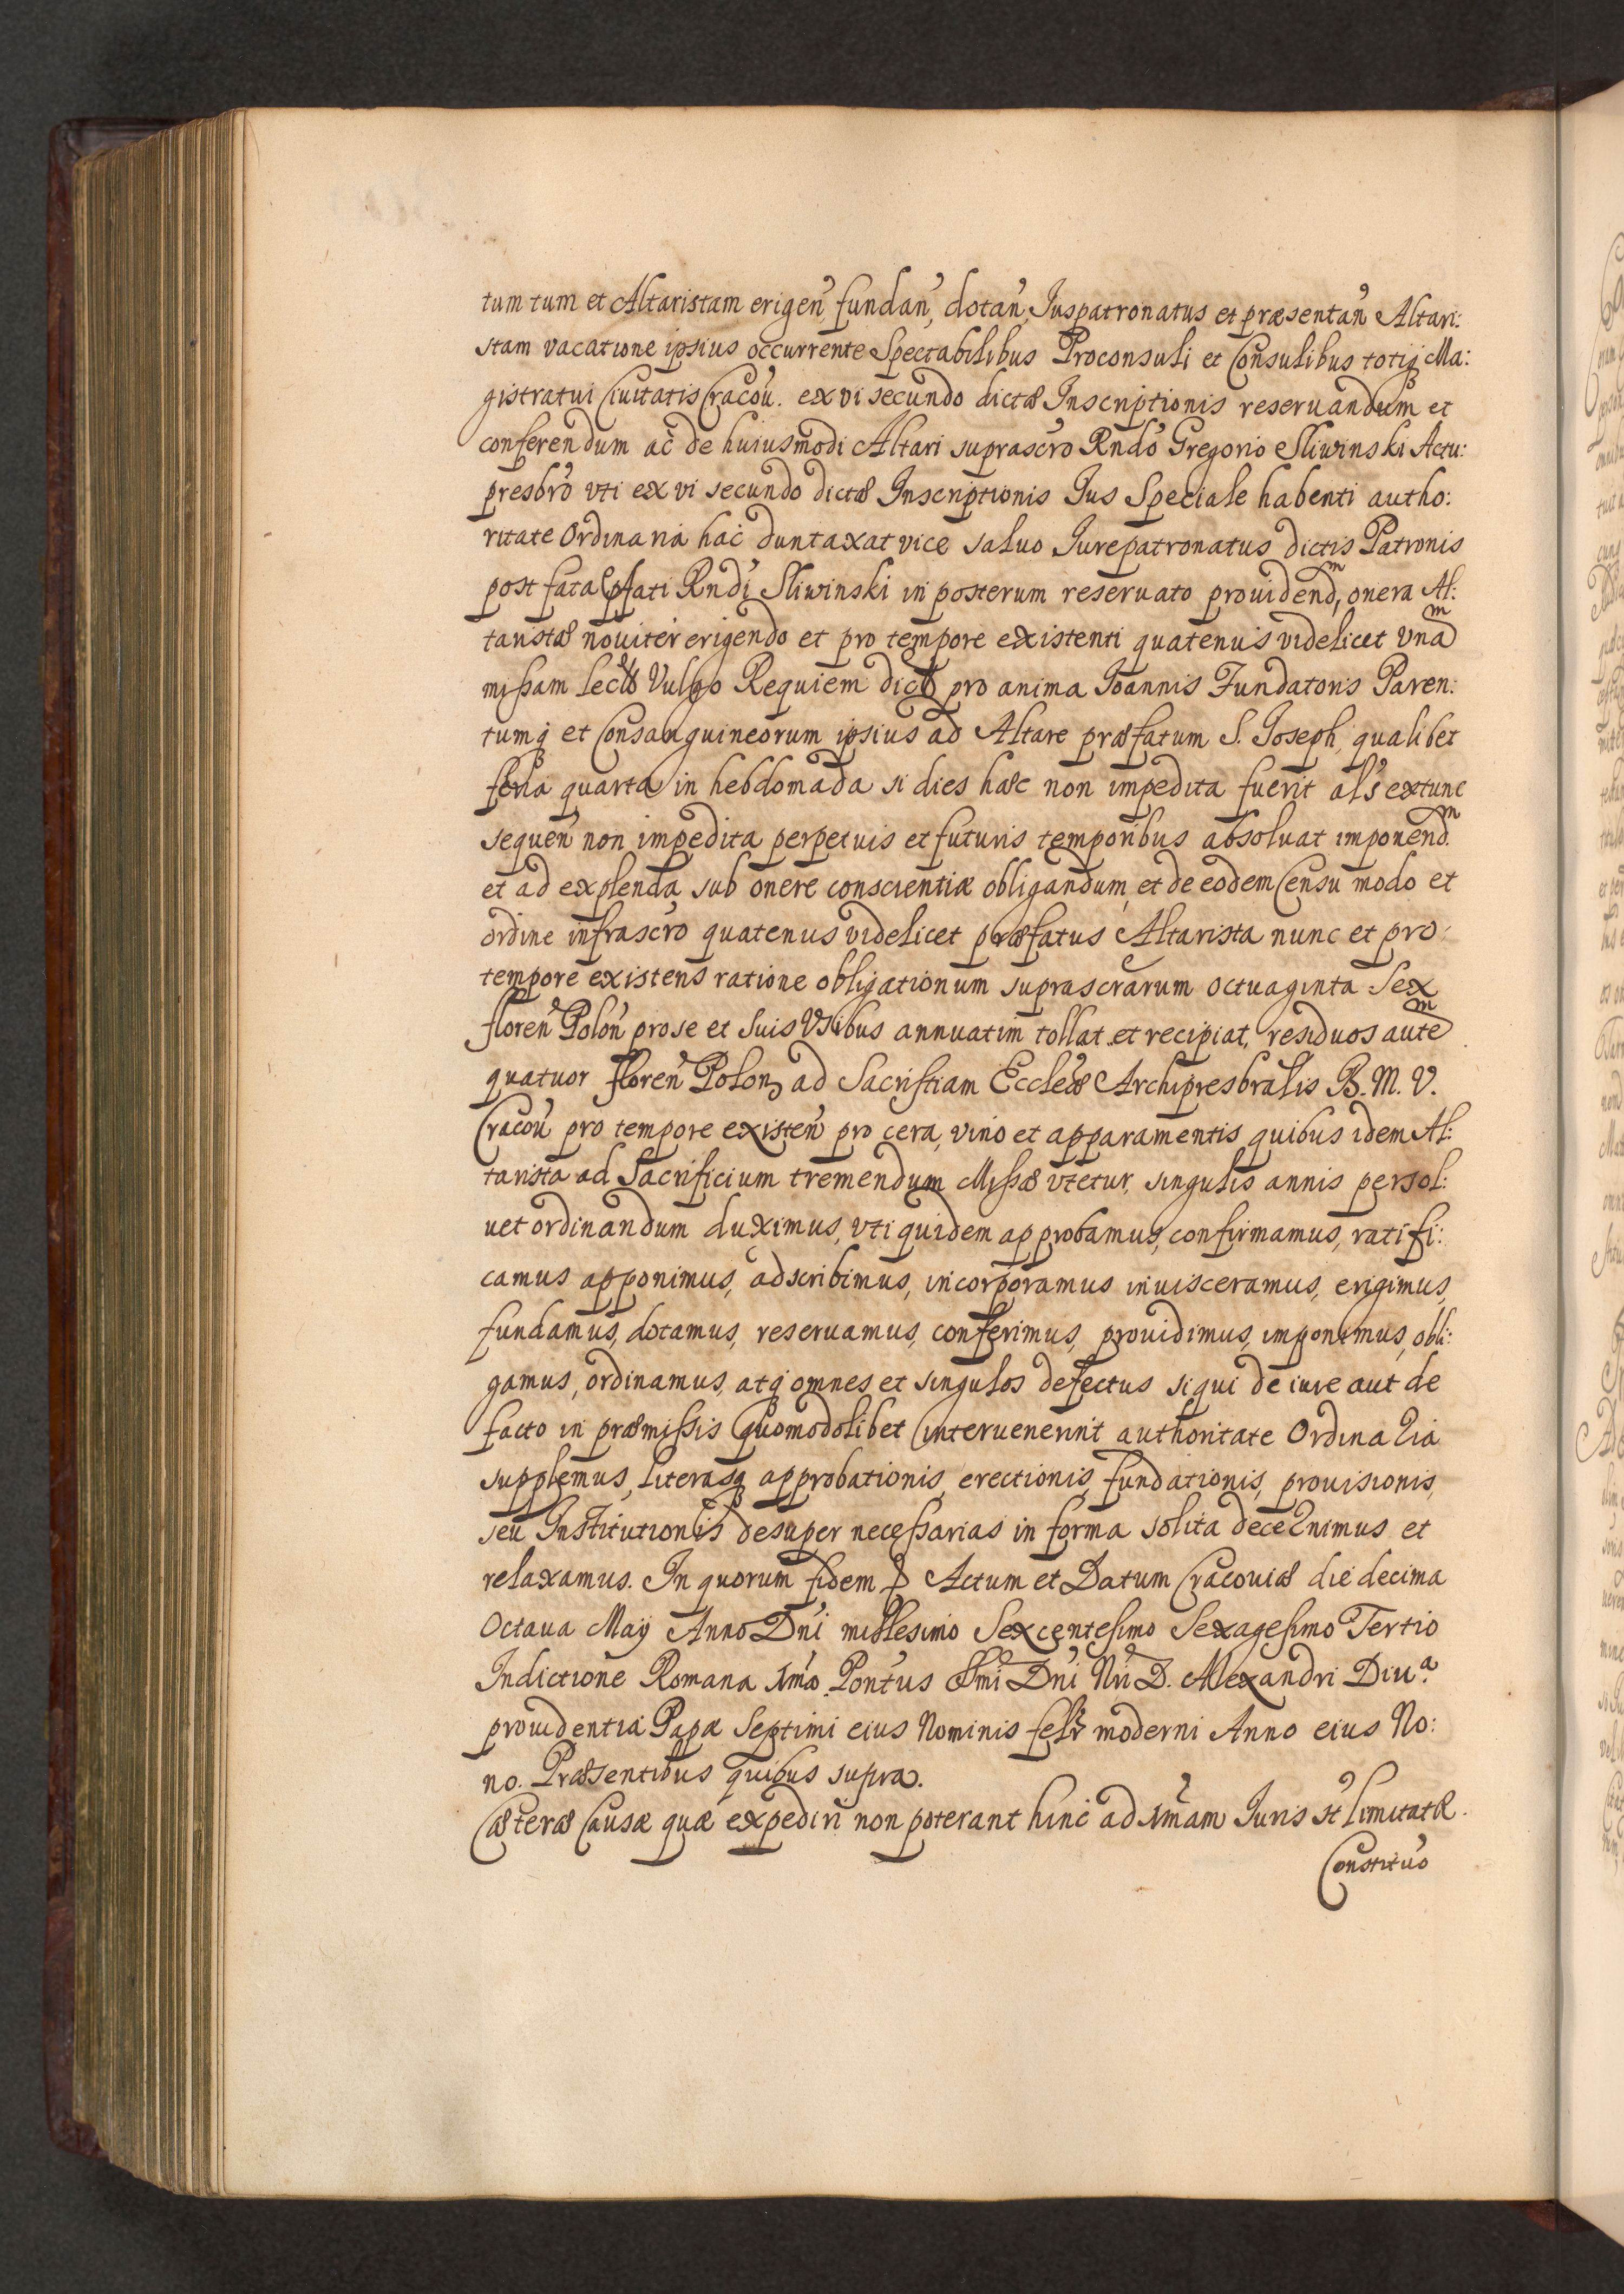 tum tum et Altaristam erigen̄, fundan̄, dotan̄, Juspatronatus et præsentan̄ Altari:
stam vacatione ipsius occurrente Spectabilibus Proconsuli et Consulibus totiq́ Ma:
gistratui Ciuitatis Cracou̕. ex vi secundo dictæ Inscriptionis reseruandum et
conferendum ac̀ de huiusmodi Altari suprascr̄o Rndo̕ Gregorio Sliwinski Actu:
presbr̄o vti ex vi secundo dictæ Inscriptionis Jus Speciale habenti autho:
ritate Ordinaria hac̀ duntaxat vice saluo Jurepatronatus dictis Patronis
post fata p̄fati Rndi̕ Sliwinski in posterum reseruato prouidendᵐ, onera Al:
taristæ nouiter erigendo et pro tempore existenti quatenus videlicet vnaᵐ
missam lectā Vulgo Requiem dictā pro anima Joannis Fundatoris Paren:
tumq́ et Consanguineorum ipsius ad Altare præfatum S. Joseph, qualibet
feria quarta in hebdomada si dies hæc non impedita fuerit al̄s extunc
sequen̄ non impedita perpetuis et futuris temporibus absoluat imponendᵐ.
et ad explenda sub onere conscientiæ obligandum, et de eodem Censu modo et
ordine infrascr̄o quatenus videlicet præfatus Altarista nunc et pro:
tempore existens ratione obligationum suprascr̄arum octuaginta Sex
floren̄ Polon̄ pro se et suis Vsibus annuatim tollat et recipiat, residuos auteᵐ
quatuor floren̄ Polon̄ ad Sacristiam Eccleǣ Archipresbr̄alis B. M. V.
Cracou̕ pro tempore existen̄ pro cera, vino et apparamentis quibus idem Al:
tarista ad Sacrificium tremendum Missæ vtetur, singulis annis persol:
uet ordinandum duximus, vti quidem approbamus, confirmamus, ratifi:
camus apponimus, adscribimus, incorporamus inuisceramus, erigimus,
fundamus, dotamus, reseruamus, conferimus, prouidimus, imponimus, obli:
gamus, ordinamus, atq́ omnes et singulos defectus si qui de iure aut de
facto in præmissis quomodolibet interuenerint authoritate Ordinaria
supplemus, Literasq́ approbationis, erectionis, fundationis, prouisionis,
seu Institutionis desuper necessarias in forma solita decernimus et
relaxamus. In quorum fidem Actum et Datum Cracouiæ die decima
Octaua Maÿ Anno Dn̄i millesimo Sexcentesimo Sexagesimo Tertio
Indictione Romana 1ma̕ Pont̄us S̄smi Dn̄i Nr̄i D. Alexandri Diu.ᵃ
prouidentia Papæ Septimi eius Nominis fel̄r moderni Anno eius No:
no. Præsentibus quibus supra.
Cæteræ Causæ quæ expediri non poterant hinc ad 1mam Juris st limitatæ.
Constitu̕o